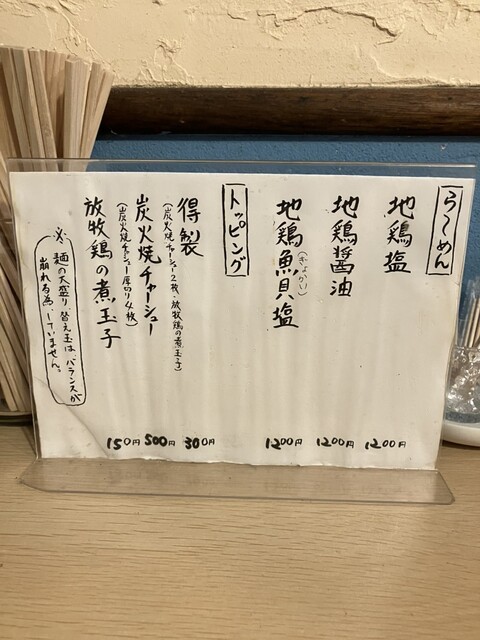 らーめん
地鶏塩
1200円
地鶏醤油
1200円
地鶏魚貝塩
(ぎょかい)
1200円
トッピング
得製
(炭火焼チャーシュー2枚・放牧鶏の煮玉子)
300円
炭火焼チャーシュー
(炭火焼チャーシュー厚切り4枚)
500円
放牧鶏の煮玉子
150円
※麺の大盛り、替え玉は、バランスが
崩れる為、していません。